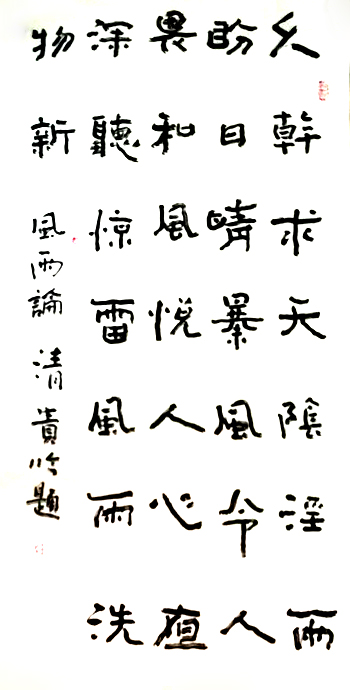 久幹求天陰淫雨
盼日晴暴風令人
畏和風悅人心直
深聽惊雷風雨洗
物新
風雨論 清貴吟題